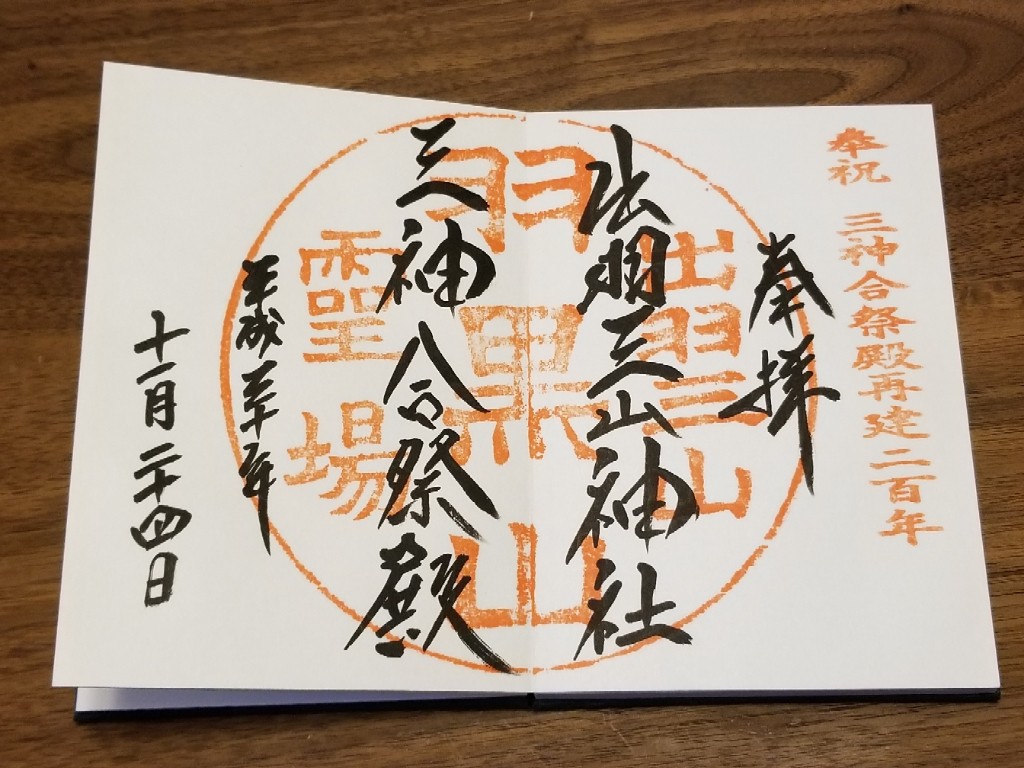 奉祝 三神合祭殿再建二百年
奉拝
出羽三山神社
三神合祭殿
平成三十年
十一月二十四日
出羽三山
羽黒山
霊場